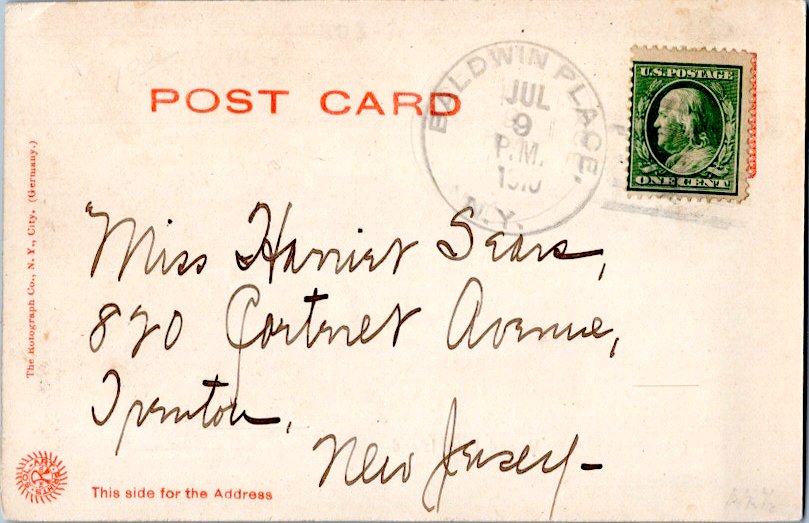 POST CARD
BALDWIN PLACE,
JUL
9
P.M.
1910
N.Y.
U.S. POSTAGE
ONE CENT
The Rotograph Co., N. Y., City. (Germany.)
Miss Harriet Sears,
820 Avenue,
Trenton,
New Jersey-
This side for the Address